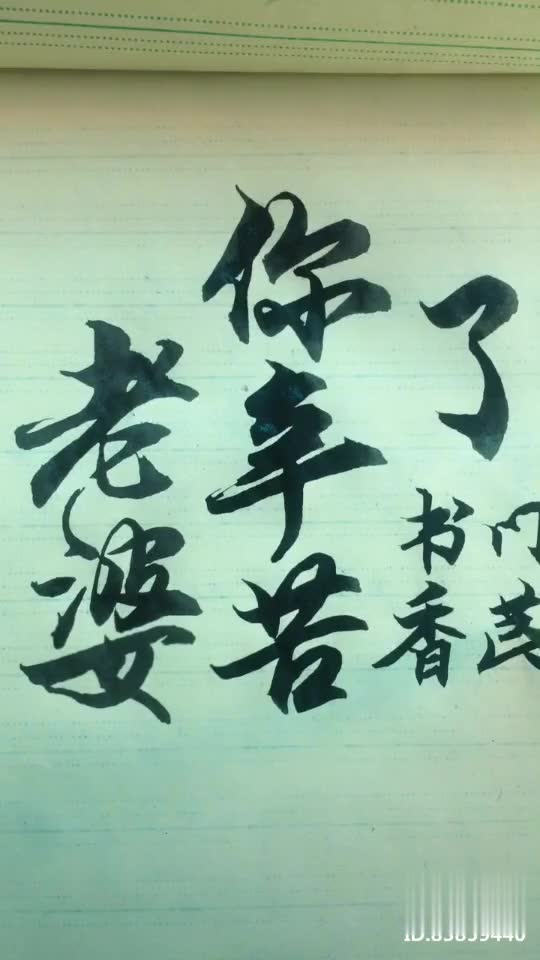 老婆
你辛苦
了
书香
门
ID:83859440